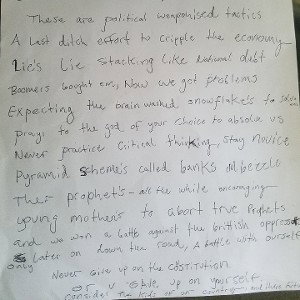 These are political weaponised tactics
A last ditch effort to cripple the economy
Lie's Lie stacking like national debt
Boomers bought em, Now we got problems
Expecting the brain washed snowflakes to solve
pray to the god of your choice to absolve us
Never practice critical thinking, stay novice
Pyramid scheme's called banks mbezzle
Their prophet's - all the while encouraging
young mothers to abort true prophets
and we won a battle against the brittish
later on down the road, a battle with ourselves
only
Never give up on the constitution
or give up on your self
Consider The kids